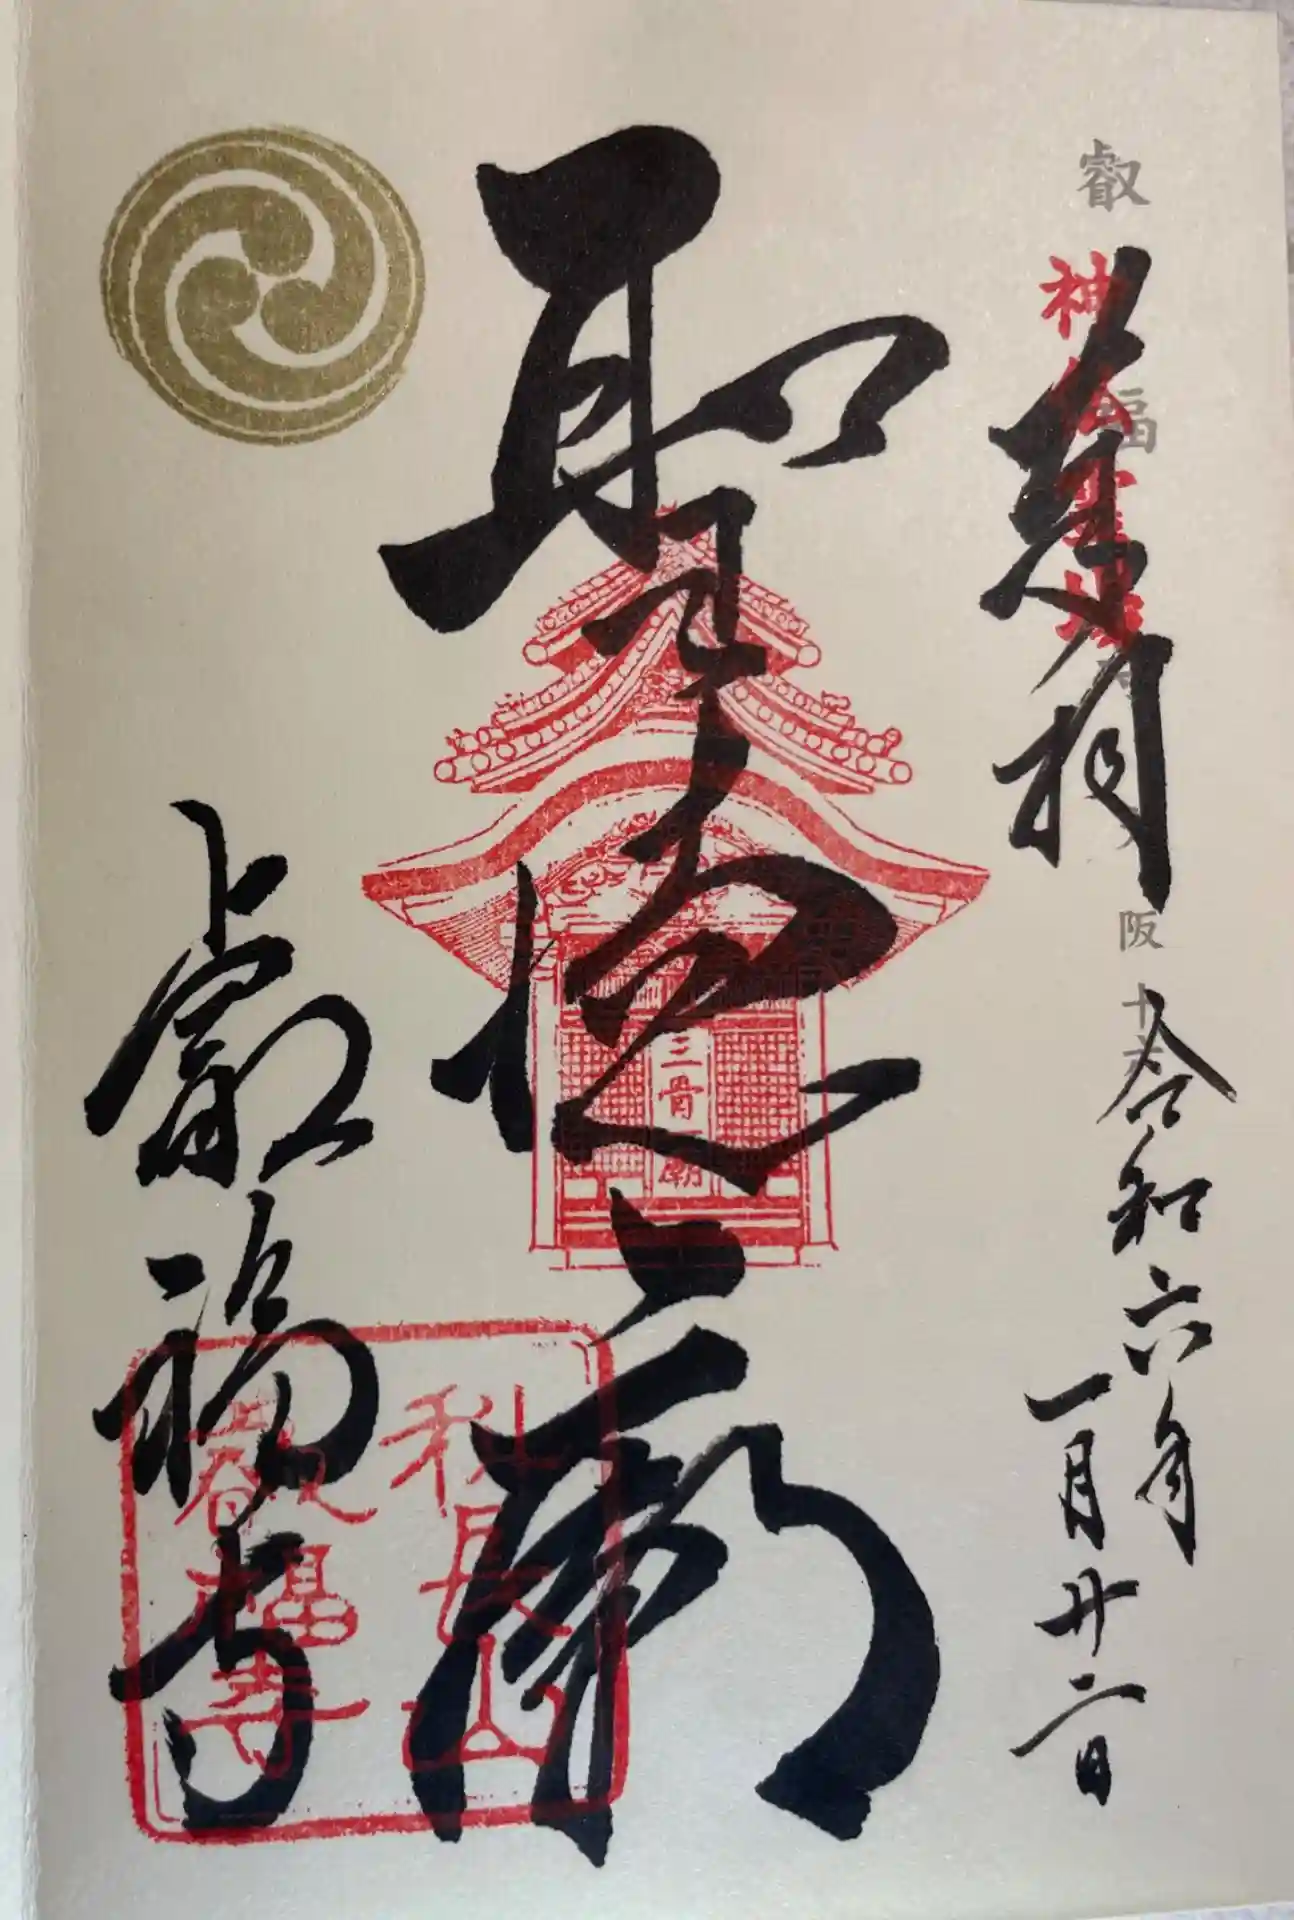 叡福 阪
神仏霊場
奉拝
令和六年
一月廿二日
聖徳廟
三骨一廟
叡福寺
科長山
叡福寺